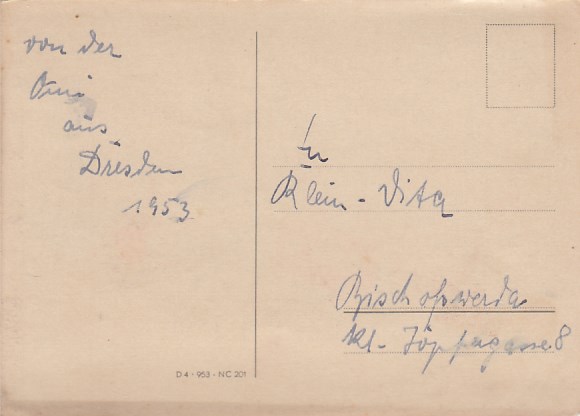 von der
Omi
aus
Dresden
1953
D 4 · 953 - NC 201
An
Klein-Vita
Bischofswerda
Kl-Töpfergasse 8